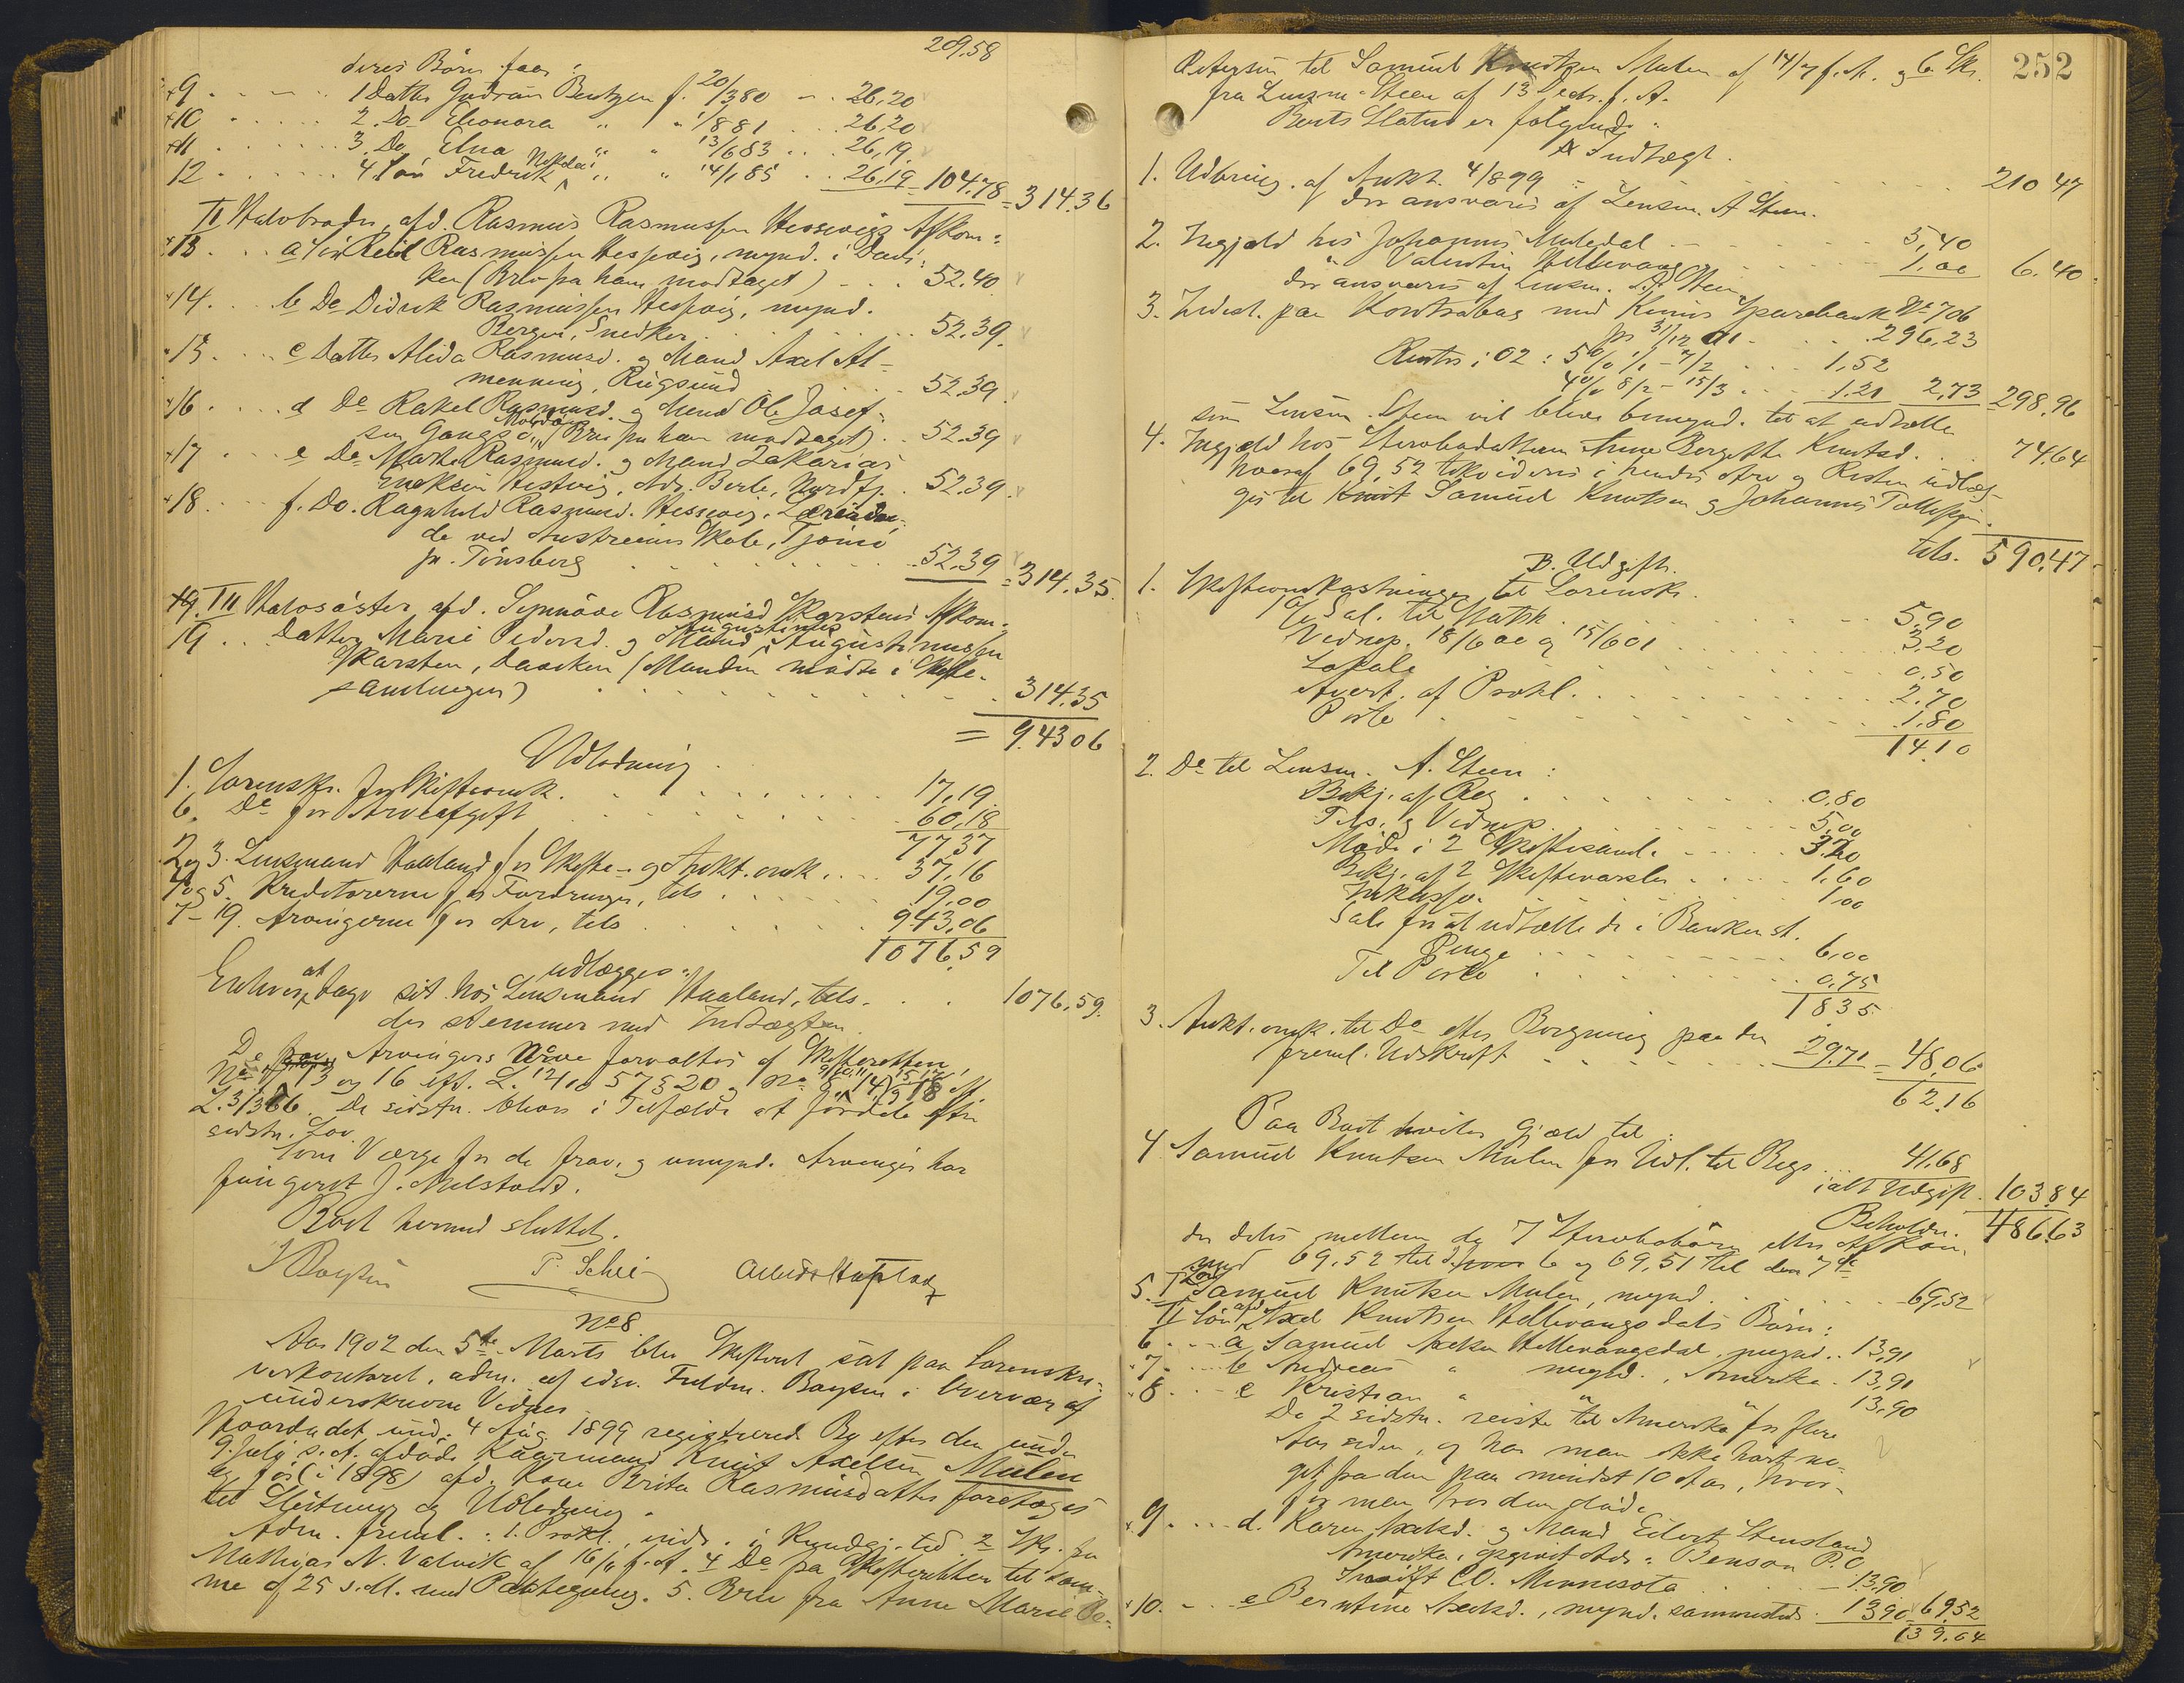 209.58
deres Börn faar:
9. 1 Datter Gudrun Bentzen f. 20/3 80 - 26,20
10 2. Do Eleonora " " 1/8 81 26,20
11 3. Do Elna " " 13/6 83 26,19
12 4 Sön Fredrik Nikolai " " 14/1 85 26,19 - 104,78 = 314.36
II Halvbroder, afd. Rasmus Rasmussen Hessevigs Afkom:
13 a Sön Rasmussen Hessevig, mynd. i
ken (Brev fra ham modtaget) 52.40
14. b Do Didrik Rasmussen Hessevig, mynd.
Bergen, Snedker 52.39.
15. c Datter Alida Rasmusd. og Mand Axel Al-
menning, Rugsund 52.39.
16. d Do Rakel Rasmusd. og Mand Ole Josef-
sen (Brev fra ham modtaget) 52.39
17 e Do Rasmusd. og Mand Zakarias
Hestvig, Adr. Berle, Nordfj. 52.39.
18 f. Do. Ragnhild Rasmusd. Hessevig, Lærerin-
de ved Skole, Tjømö
pr. Tönsberg 52.39 = 314.35.
19. III Halvsöster, afd. Synnöve Rasmusd Karstens Afkom:
19 Datter Marie Pedersd. og Mand Augustinus Augustinussen
Karsten, (Manden mödte i Skifte-
samlingen) 314.35
= 943 06
Udlodning.
1. Sorenskr. for Skifteomk. 17,19.
6. Do for Arveafgift 60,18
77 37
2 og 3. Lensmand Haaland for Skifte- og Aukt. omk. 37,16
4 og 5. Kreditorerne for Fordringer, tils 19,00
7-19. Arvingerne for Arv, tils 943,06
1076,59
udlægges:
Enhver at tage sit hos Lensmand Haaland, tils. 1076,59.
der stemmer med Indtægten.
De Arvingers Arve forvaltes af Skifteretten,
No 13 og 16 eft. L. 12/10 57 § 20 og No 8 9, 10, 11, 14, 15, 17, 18 eft.
L. 31/3 66. De sidstn. blive i Tilfælde at fordele efter
sidstn. Lov.
Som Værge for de frav. og umynd. Arvinger har
fungeret J. Melstold.
Boet hermed sluttet.
Boysen T. Schei
No 8
Aar 1902 den 5te Marts blev Skifteret sat paa Sorenskri-
verkontoret, adm. af edsv. Fuldm. Boysen i Overvær af
underskrevne Vidner
Hvorda det und. 4 Aug. 1899 registrered. Bo efter den under
9. July s. A. afdöde Kaarmand Knut Axelsen Mulen
og för (i 1898) afd. Kone Brita Rasmusdatter foretages
til Slutning og Udlodning.
Adm. freml.: 1. Prokl., inds. i Kundgj. tid. 2 Skr. fra
Mathias N. Valvik af 16/11 f. A. 4 Do fra Skifteretten til sam-
me af 25 s. M. med Paategning. 5. Brev fra Anne Marie Pe-
252
Petersen til Samuel Knutsen Mulen af 14/7 f. A. og 6. Skr.
fra Lensm. Steen af 13 Decbr. f. A.
Boets Status er følgende:
A Indtægt.
1. Udbring. af Aukt. 4/8 99 210 47
der ansvares af Lensm. A Steen.
2. Tilgjæld hos Johannes Muledal 5,40
" Valentin Hellevang 1,00 6.40
der ansvares af Lensm. A. Steen
3. Indest. paa Kontrabog med Kinns Sparebank No 706
pr 31/12 01 296,23
Renter i 02: 5% 1/1 - 7/2 1,52
4% 8/2 - 15/3 1.21 2,73 = 298,96
som Lensm. Steen vil blive bemynd. til at udhæve
4. Tilgjæld hos Stervbodatteren Anne Bergitte Knutsd. 74.64
hvoraf 69,52 likvideres i hendes Arv og Resten udlæg-
ges til Knut Samuel Knutsen og Johannes Tollefsen.
tils. 590.47
B. Udgift.
1. Skifteomkostninger til Sorenskr.
Sal. til Statsk. 5,90
Vedrep. 18/6 00 og 15/6 01 3,20
Lokale 0,50
Avert. af Prokl. 2.70
Porto 1.80
14.10
2. Do til Lensm. A. Steen:
Bekj. af Reg 0,80
Tils. og Vidnep. 5,00
Möde i 2 Skiftesaml. 3,20
Bekj. af 2 Skiftevarsler 1,60
Inkasso. 1,00
Salr for at udhælle de i Banken st.
Penge 6,00
Til Porto 0,75
18 35
3. Aukt. omk. til Do efter Beregning paa den
freml. Udskrift 29.71 = 48,06
62.16
Paa Boet hviler Gjæld til:
4 Samuel Knutsen Mulen for Udl. til Regs 41.68
ialt Udgift. 103.84
Beholdn. 486.63
der deles mellem de 7 Stervbobörn eller Afkom,
med 69,52 til de 6 og 69,51 til den 7de
5. I Sön Samuel Knutsen Mulen, mynd. 69,52
II Sön afd Axel Knutsen Hellevangsdals Börn:
6. a Samuel Axelsen Hellevangsdal, mynd. 13,91
7. b Andreas " mynd., Amerika. 13,91
8 c Kristian " " 13,90
De 2 sidstn. reiste til Amerika for flere
Aar siden, og har man ikke hört no-
get fra dem paa mindst 10 Aar, hvor-
for man tror dem döde
9. d. Karen Axelsd. og Mand Eilert Stensland
Amerika, opgivet Adr.: Benson P.O.
Swift CO. Minnesota 13,90
10. e Berntine Axelsd., mynd. sammesteds 13,90 69.52
139,04